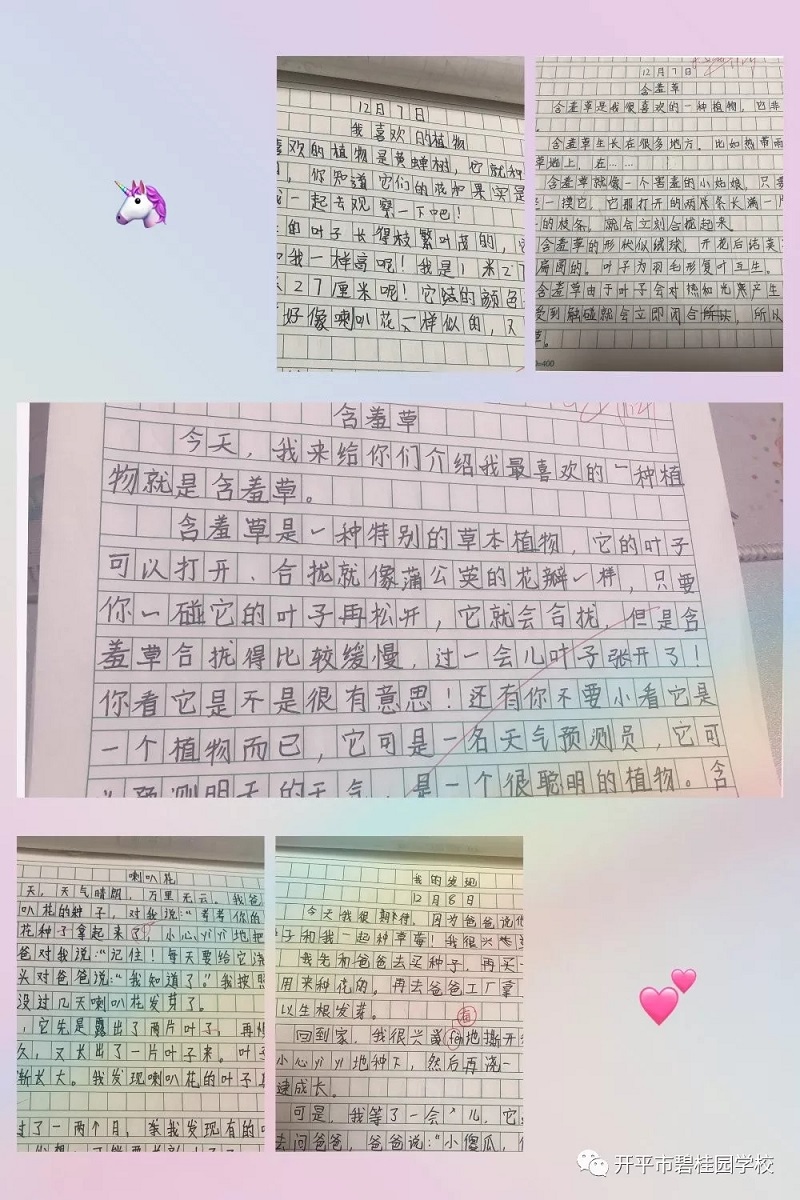 12月7日
我喜欢的植物
喜欢的植物是黄蝉树，它就种
你知道它们的花和果实是
一起去观察一下吧！
的叶子长得枝繁叶茂的，它
和我一样高呢！我是1米27
27厘米呢！它的颜色
好像喇叭花一样似的，又
12月7日
含羞草
含羞草是我很喜欢的一种植物，它非
含羞草生长在很多地方，比如热带雨
草地上，在……
含羞草就像一个害羞的小姑娘，只要
一摸它，它那打开的两片长长满一
的枝条，就会立刻合拢起来。
含羞草的形状似绒球，开花后结荚
扁圆的。叶子为羽毛形复叶互生。
含羞草由于叶子会对热和光产生
受到触碰就会立即闭合，所以
草。
含羞草
今天，我来给你们介绍我最喜欢的一种植
物就是含羞草。
含羞草是一种特别的草本植物，它的叶子
可以打开、合拢就像蒲公英的花瓣一样，只要
你一碰它的叶子再松开，它就会合拢，但是含
羞草合拢得比较缓慢，过一会儿叶子张开了！
你看它是不是很有意思！还有你不要小看它是
一个植物而已，它可是一名天气预测员，它可
预测明天的天气，是一个很聪明的植物。含
喇叭花
天，天气晴朗，万里无云。我爸
叭花的种子，对我说：“考考你的
花种子拿起来了，小心yìyì地把
爸对我说：“记住！每天要给它浇
头对爸爸说：“我知道了。”我按照
没过几天喇叭花发芽了。
，它先是露出了两片叶子，再慢
久，又长出了一片叶子来。叶子
渐长大。我发现喇叭花的叶子
过了一两个月，我发现有的
我的发现
12月8日
今天我很期待，因为爸爸说他
子和我一起种草莓！我很兴奋
我先和爸爸去买种子，再买一
用来种花的。再去爸爸工厂拿
以生根发芽。
回到家，我很兴奋地撕开
小心yìyì地种下，然后再浇一
速成长。
可是，我等了一会儿，它
去问爸爸，爸爸说：“小傻瓜，
开平市碧桂园学校